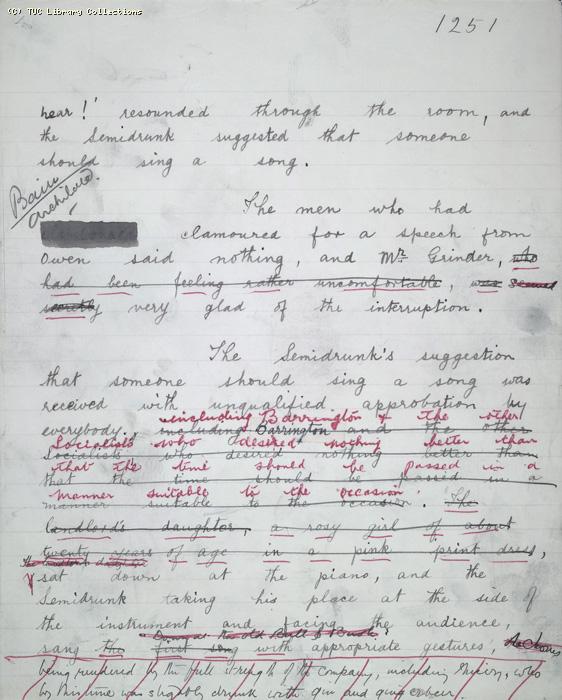 (C) TUC Library Collections
1251
hear!' resounded through the room, and
the Semidrunk suggested that someone
should sing a song.
The men who had
clamoured for a speech from
Owen said nothing, and Mr Grinder, who
had been feeling rather uncomfortable, was
secretly very glad of the interruption.
The Semidrunk's suggestion
that someone should sing a song was
received with unqualified approbation by
everybody. including Barrington and the other
including Barrington & the other
Socialists who desired nothing better than
Socialists who desired nothing better than
that the time should be passed in a
that the time should be passed in a
manner suitable to the occasion.
manner suitable to the occasion. The
landlord's daughter, a rosy girl of about
twenty years of age in a pink print dress,
sat down at the piano, and the
Semidrunk taking his place at the side of
the instrument and facing the audience,
sang the first song with appropriate gestures,
being rendered by the full strength of the company, including Grinder, who
by this time was slightly drunk with gin and ginger beer.